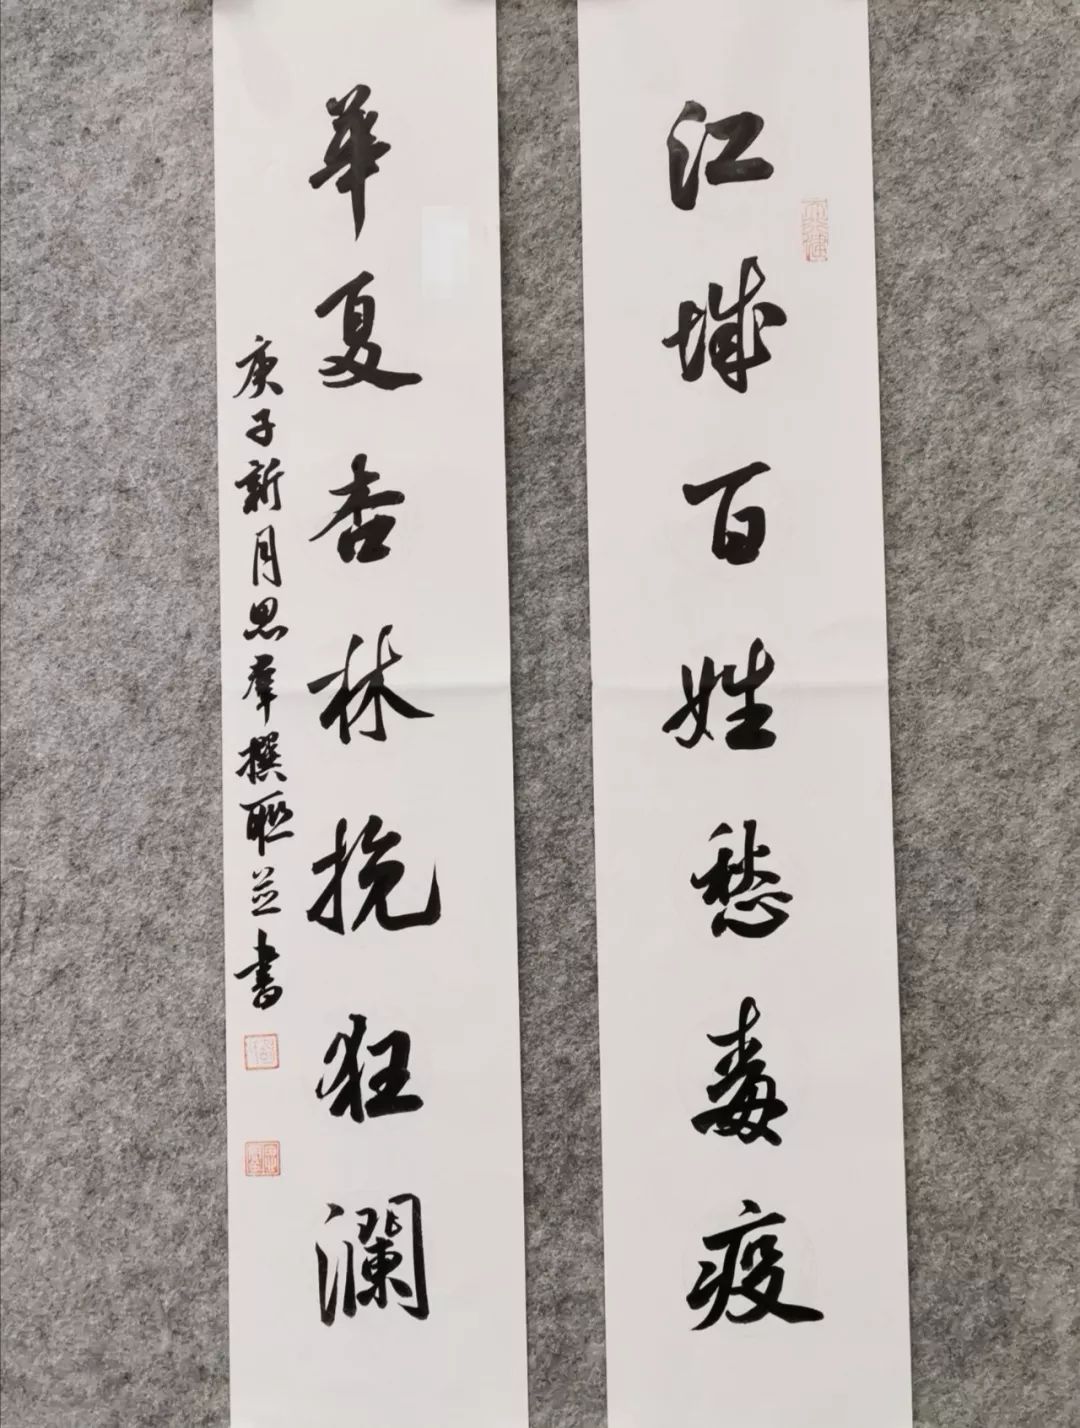 江城百姓愁毒疫
華夏杏林挽狂澜
庚子新月思羣撰聯并書